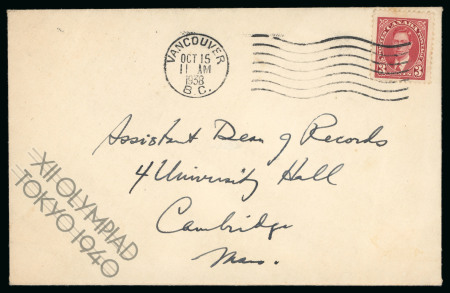 VANCOUVER
OCT 15
11 AM
1938
B.C.
CANADA
3 3
Assistant Dean of Records
4 University Hall
Cambridge
Mass.
XII OLYMPIAD
TOKYO 1940